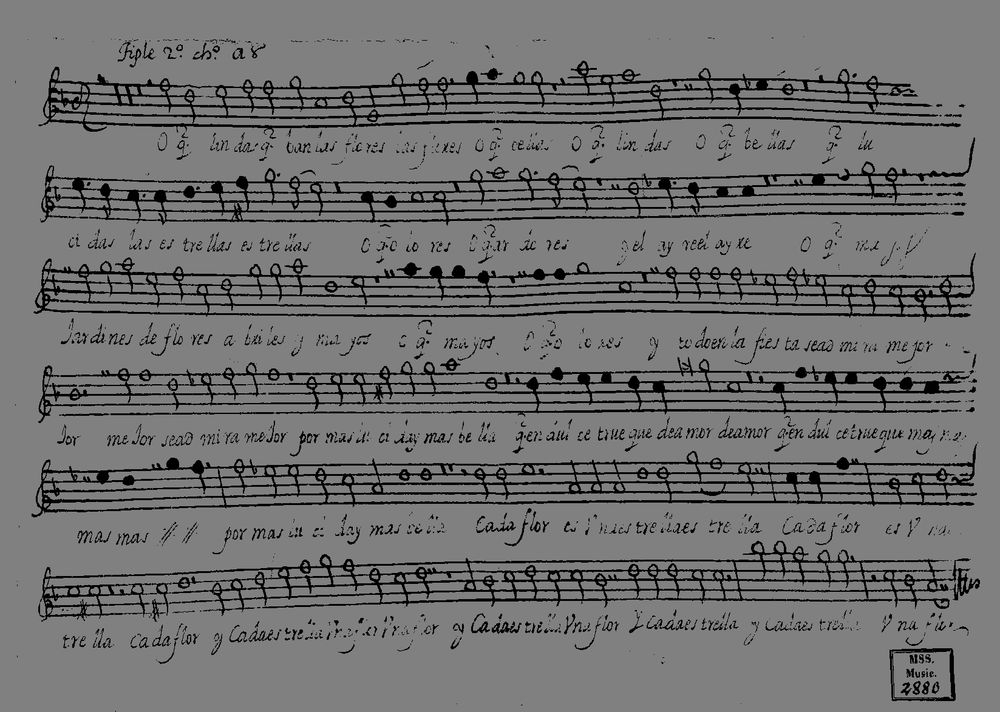 Tiple 2º chº a 8
O q̃ lindas q̃ ban las flores las flores O q̃ bellas O q̃ lin das O q̃ be llas q̃ lu
ci das las es tre llas es tre llas O q̃ o lo res O q̃ ar do res y el ay re el ay re O q̃ ma
Jardines de flo res a briles y ma yos o q̃ mayos O q̃ o lo res y todo en la fies ta sea ad mi ra me jor
Jor me Jor sea ad mi ra me Jor por mas lu ci da y mas be lla q̃ en dul ce true que de a mor de amor q̃ en dul ce true que
mas mas por mas lu ci da y mas be lla Cada flor es V na es tre lla es tre lla Cada flor es V na
tre lla cada flor y Cada es tre lla V na flor V na flor y Cada es tre lla V na flor Y cada es trella y cada es trella V na flor
MSS.
Music.
2880